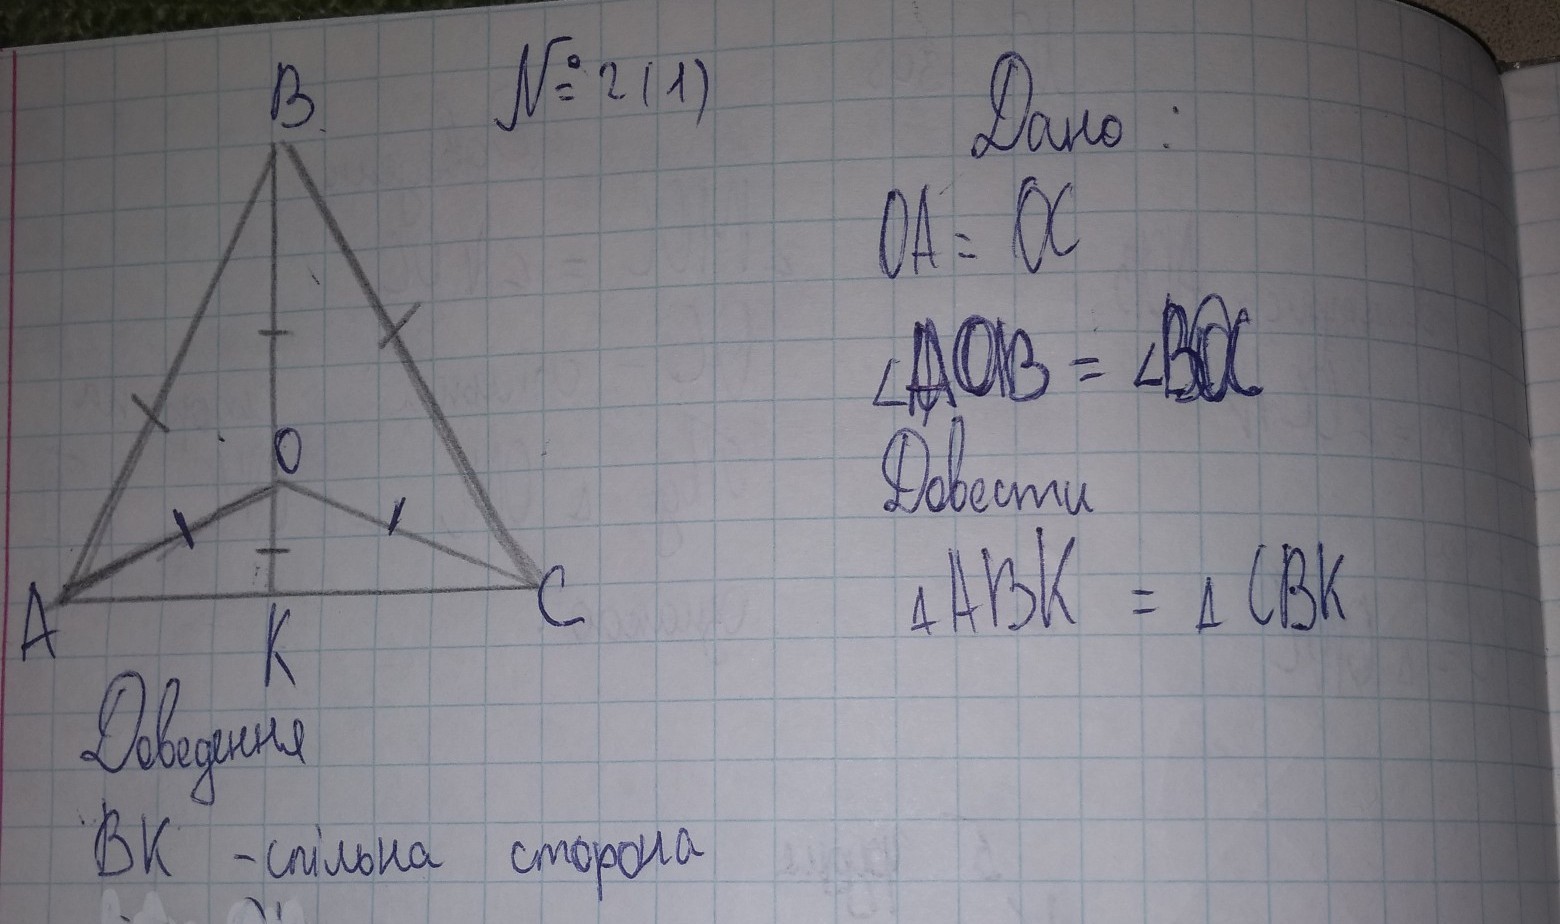 № 2(1)
B
O
A
K
C
Дано :
OA = OC
∠AOB = ∠BOC
Довести
△ABK = △CBK
Доведення
BK - спільна сторона